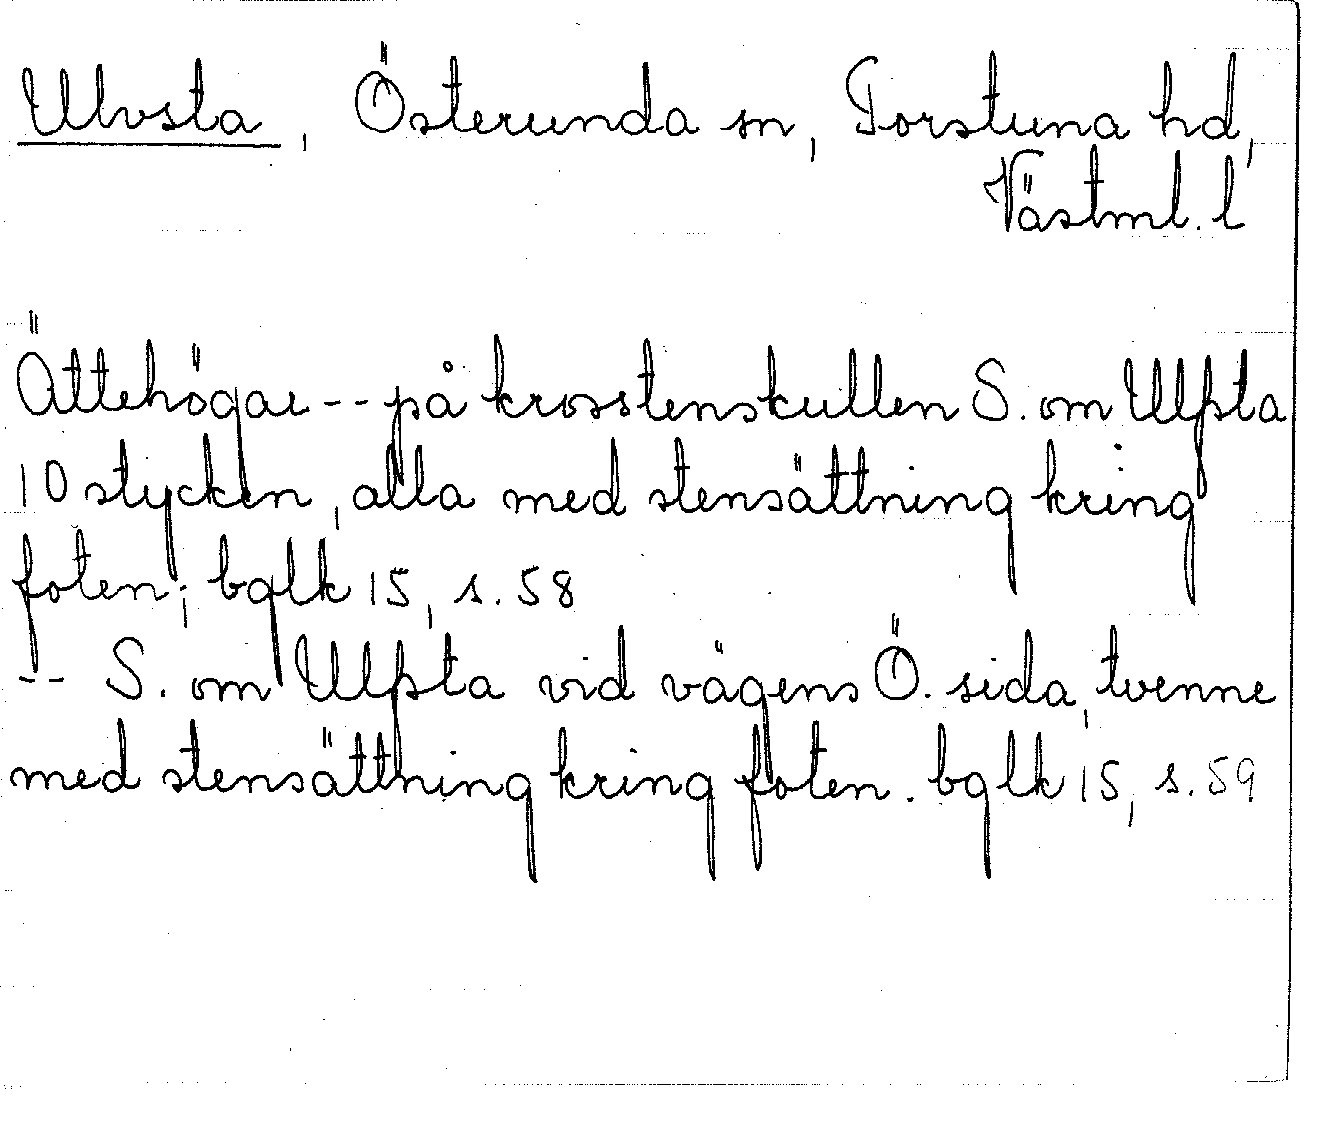 Ulvsta, Österunda sn, Torstuna hd,
Västml. l
Ättehögar -- på krosstenskullen S. om Ulfsta
10 stycken, alla med stensättning kring
foten; bglk 15, s. 58
-- S. om Ulfsta vid vägens Ö. sida, tvenne
med stensättning kring foten. bglk 15, s. 59